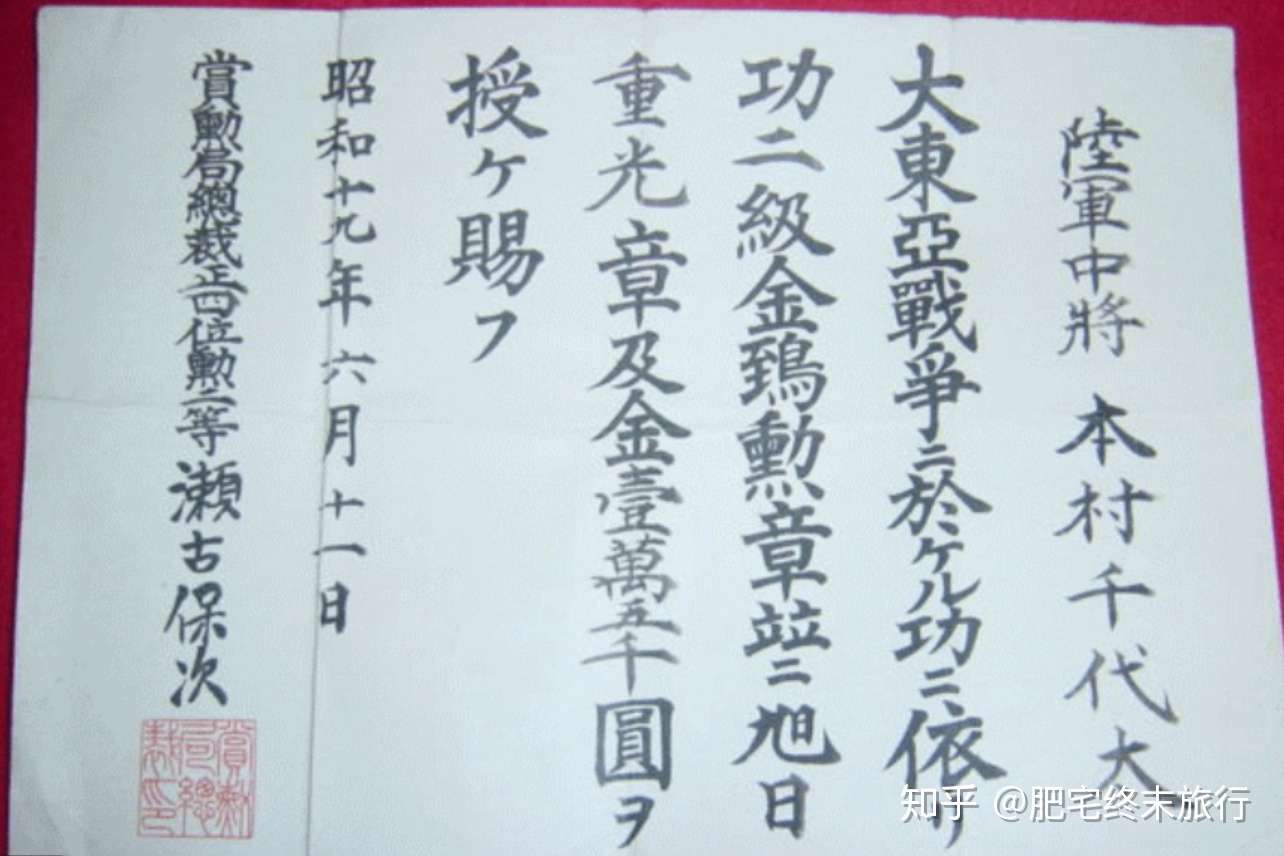 陸軍中將 本村千代太
大東亞戰爭ニ於ケル功ニ依リ
功二級金鵄勳章竝ニ旭日
重光章及金壹萬五千圓ヲ
授ケ賜フ
昭和十九年六月十一日
賞勳局總裁正四位勳二等瀨古保次
賞勳局總裁印
知乎 @肥宅终末旅行